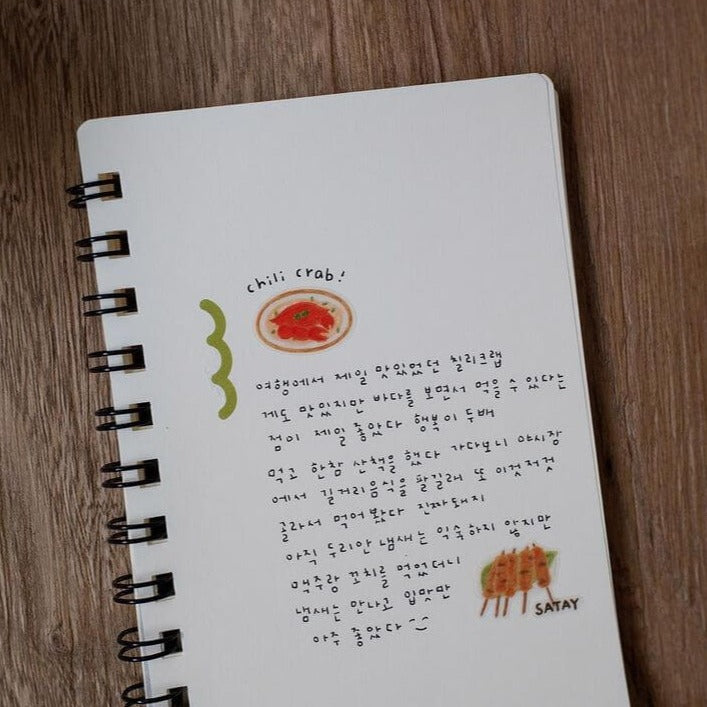 chili crab!
여행에서 제일 맛있었던 칠리크랩
게도 맛있지만 바다를 보면서 먹을 수 있다는
점이 제일 좋았다 행복이 두배
먹고 한참 산책을 했다 가다보니 야시장
에서 길거리음식을 팔길래 또 이것저것
골라서 먹어 봤다 진짜돼지
아직 두리안 냄새는 익숙하지 않지만
맥주랑 꼬치를 먹었더니
냄새는 안나고 입맛만
아주 좋았다
SATAY